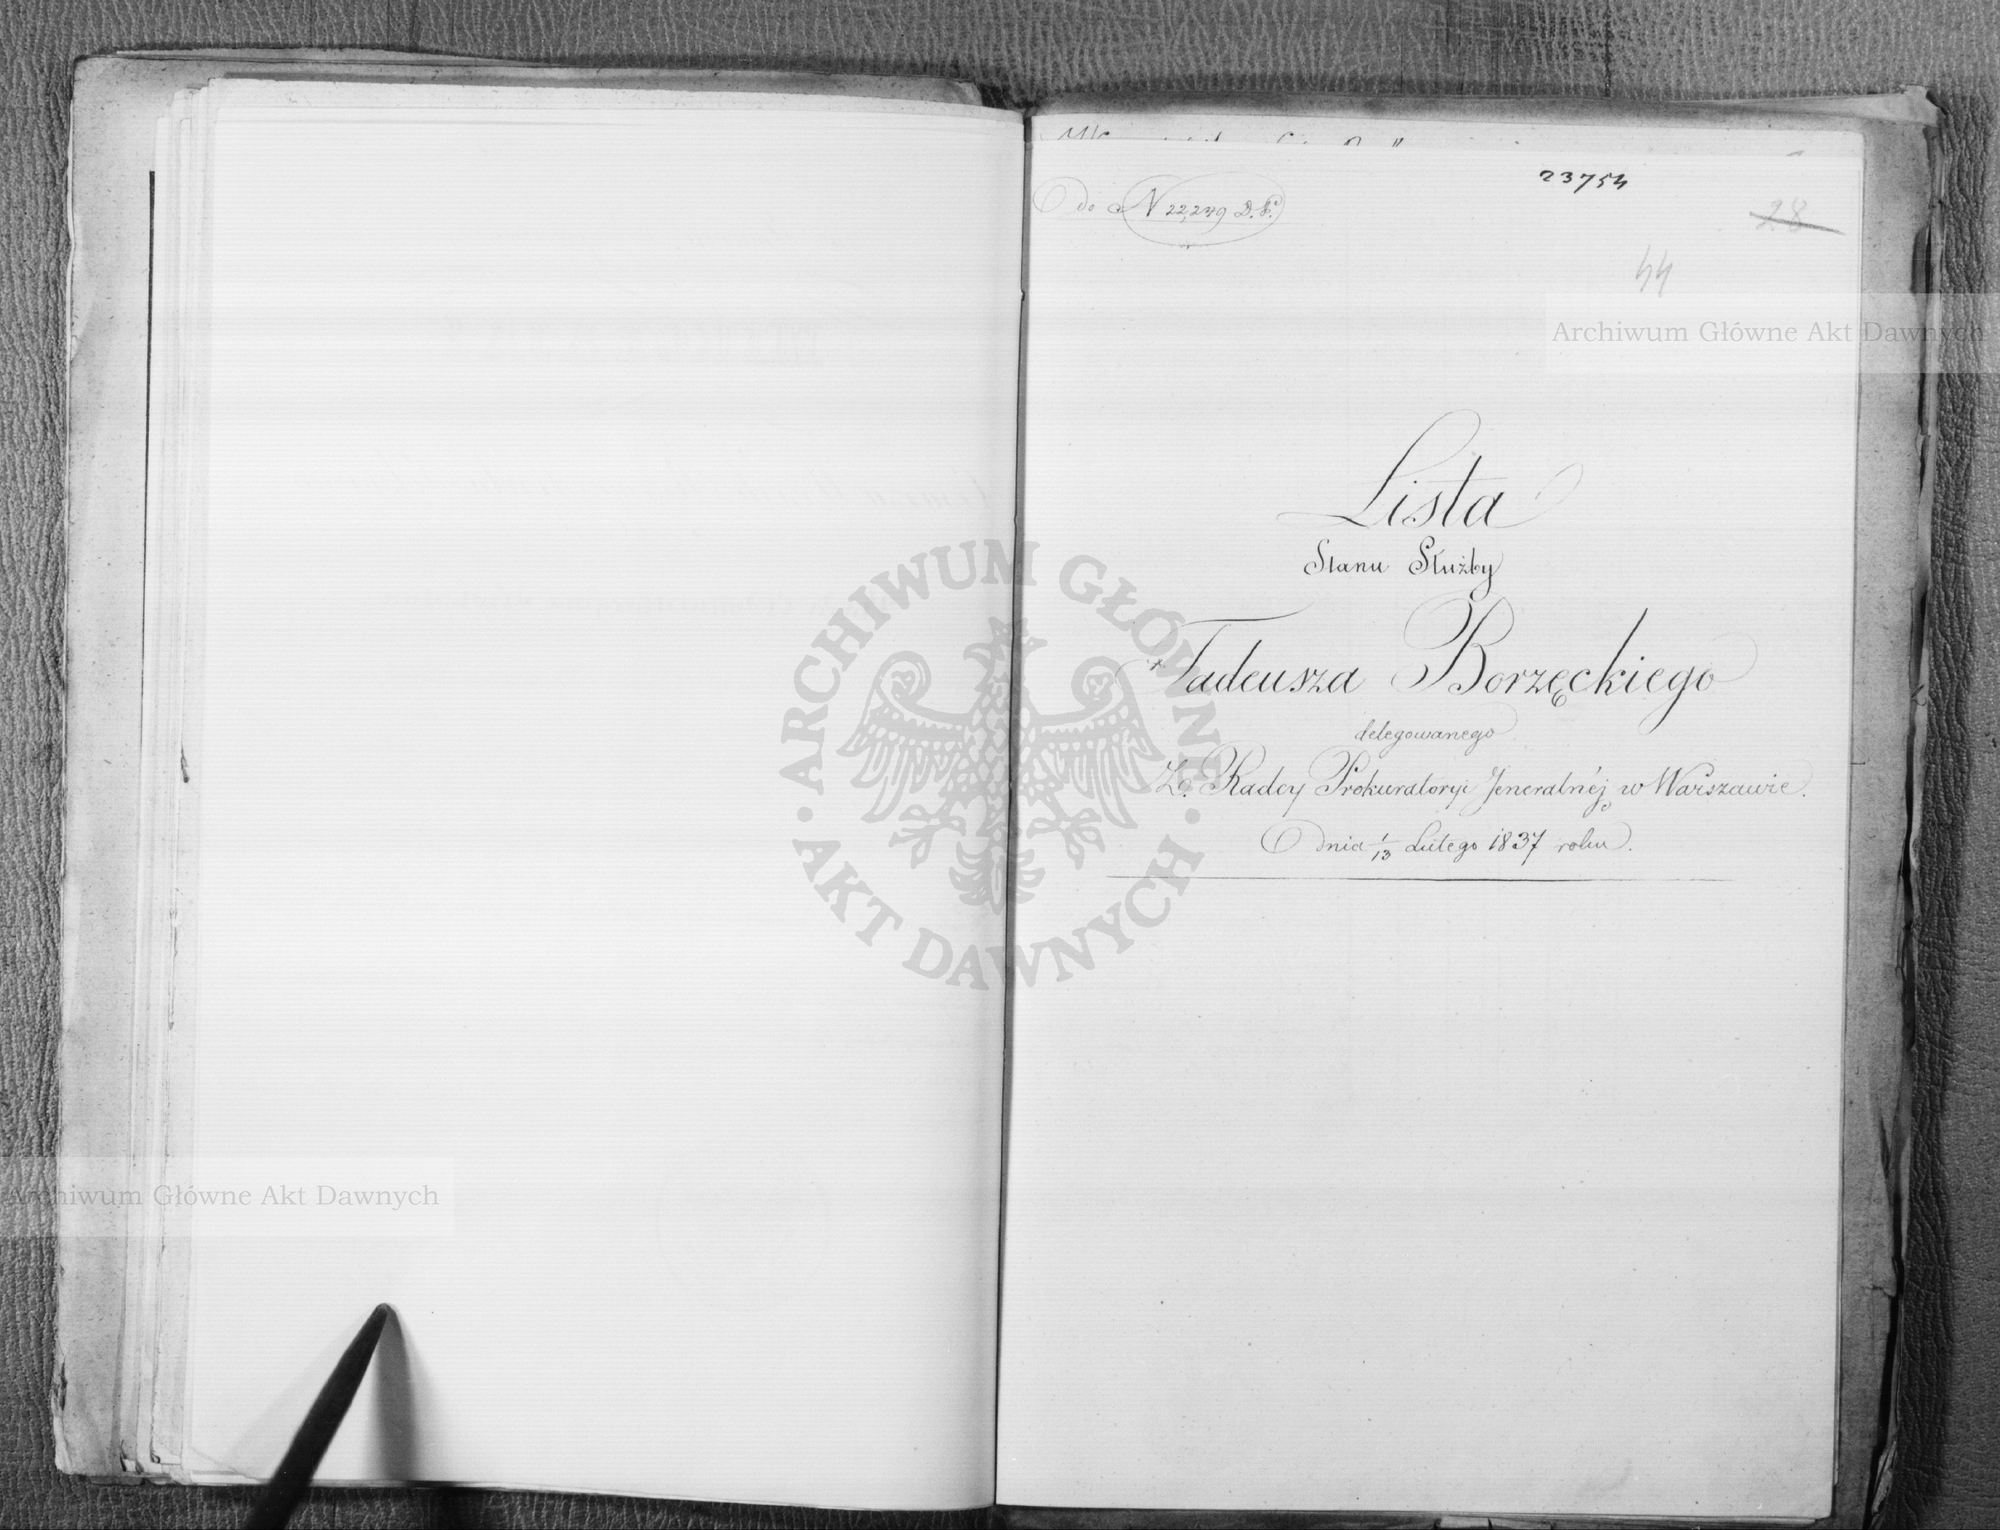 23754
do N 22,279 D.P.
28
44
Archiwum Główne Akt Dawnych
Lista
Stanu Służby
Tadeusza Borzęckiego
delegowanego
Z. Radcy Prokuratoryi Jeneralnéj w Warszawie.
Dnia 1/13 Lutego 1837 roku.
ARCHIWUM GŁÓWNE
AKT DAWNYCH
Archiwum Główne Akt Dawnych